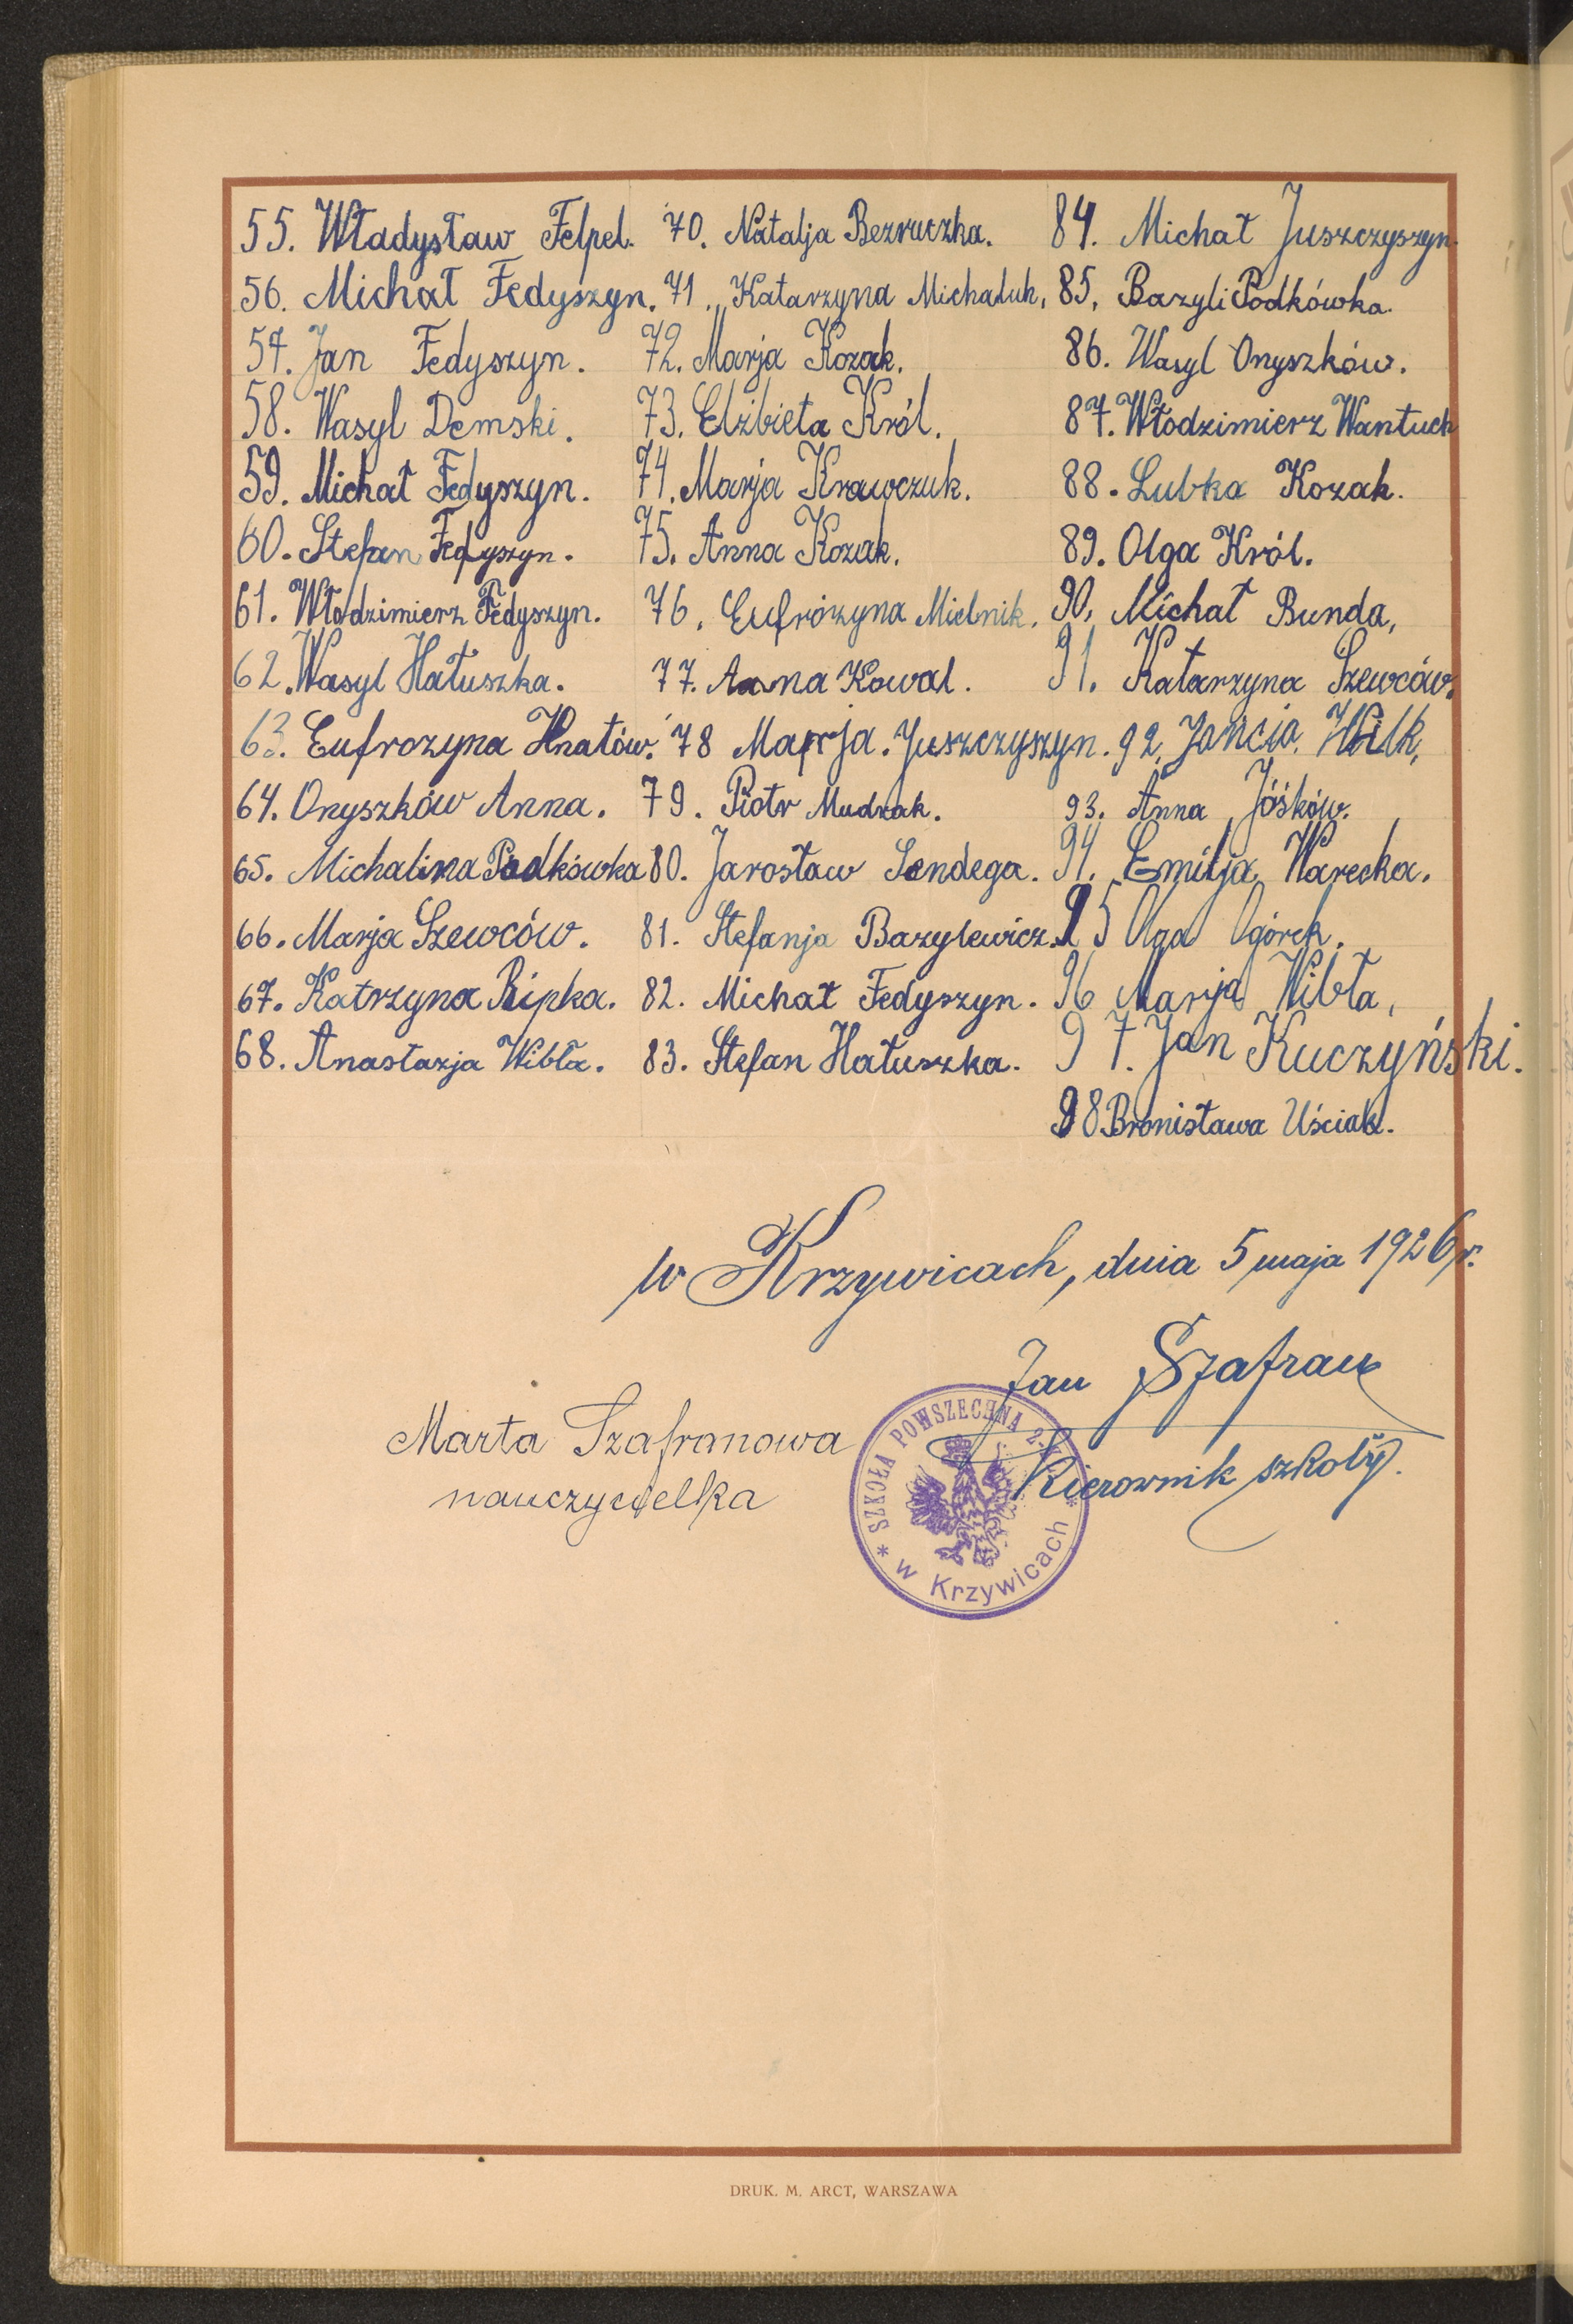 55. Władysław Felpel.
56. Michał Fedyszyn.
57. Jan Fedyszyn.
58. Wasyl Demski.
59. Michał Fedyszyn.
60. Stefan Fedyszyn.
61. Włodzimierz Fedyszyn.
62. Wasyl Hałuszka.
63. Eufrozyna Hnatów.
64. Onyszków Anna.
65. Michalina Podkówka
66. Marja Szewców.
67. Katrzyna Ripka.
68. Anastazja Wibła.
70. Natalja Bezruczka.
71. Katarzyna Michaluk,
72. Marja Kozak.
73. Elżbieta Król.
74. Marja Krawczuk.
75. Anna Kozak.
76. Eufrozyna Mielnik.
77. Anna Kowal.
78 Marja. Juszczyszyn.
79. Piotr Mudrak.
80. Jarosław Sendega.
81. Stefanja Bazylewicz.
82. Michał Fedyszyn.
83. Stefan Hałuszka.
84. Michał Juszczyszyn.
85. Bazyli Podkówka.
86. Wasyl Onyszków.
87. Włodzimierz Wantuch
88. Lubka Kozak.
89. Olga Król.
90. Michał Bunda,
91. Katarzyna Szewców.
92. Jańcia Wilk,
93. Anna Jóśków.
94. Emilja Warecka.
95 Olga Ogórek.
96 Marja Wibła,
97. Jan Kuczyński.
98 Bronisława Uściak.
w Krzywicach, dnia 5 maja 1926 r.
Jan Szafran
Kierownik szkoły.
Marta Szafranowa
nauczycielka
* SZKOŁA POWSZECHNA 2.
* w Krzywicach *
DRUK. M. ARCT, WARSZAWA